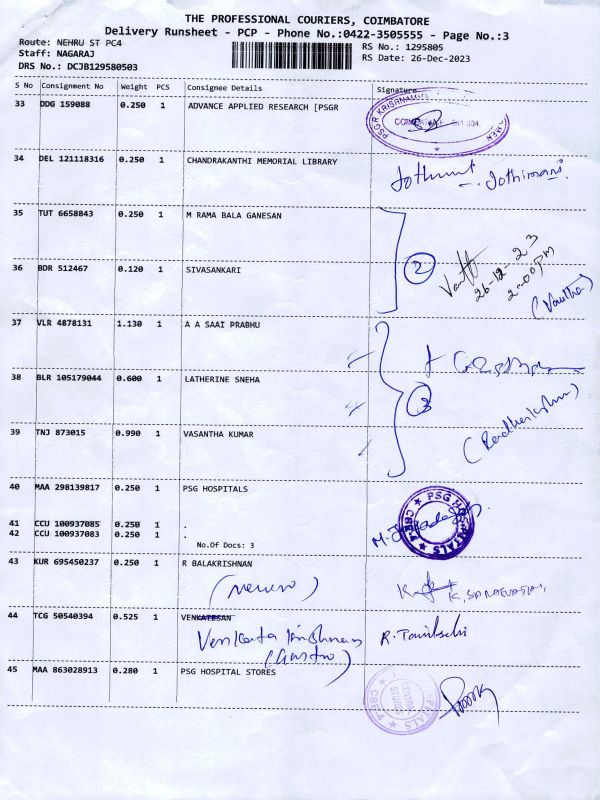 THE PROFESSIONAL COURIERS, COIMBATORE
Delivery Runsheet - PCP - Phone No.:0422-3505555 - Page No.:3
Route: NEHRU ST PC4
RS No.: 1295805
Staff: NAGARAJ
RS Date: 26-Dec-2023
DRS No.: DCJB129580503
S No Consignment No Weight PCS Consignee Details Signature
33 DDG 159088 0.250 1 ADVANCE APPLIED RESEARCH [PSGR
PSGR KRISHNAMMAL
34 DEL 121118316 0.250 1 CHANDRAKANTHI MEMORIAL LIBRARY
Jothimani.
35 TUT 6658843 0.250 1 M RAMA BALA GANESAN
36 BDR 512467 0.120 1 SIVASANKARI
2
26-12-23
2-00pm
(Vanitha)
37 VLR 4878131 1.130 1 A A SAAI PRABHU
38 BLR 105179044 0.600 1 LATHERINE SNEHA
3
39 TNJ 873015 0.990 1 VASANTHA KUMAR
(Radhakrishnan)
40 MAA 298139817 0.250 1 PSG HOSPITALS
PSG HOSPITALS
41 CCU 100937085 0.250 1 .
42 CCU 100937083 0.250 1 .
No.Of Docs: 3
43 KUR 695450237 0.250 1 R BALAKRISHNAN
44 TCG 50540394 0.525 1 VENKATESAN
Venkata Krishnan
(Gastro)
R. Tamilselvi
45 MAA 863028913 0.280 1 PSG HOSPITAL STORES